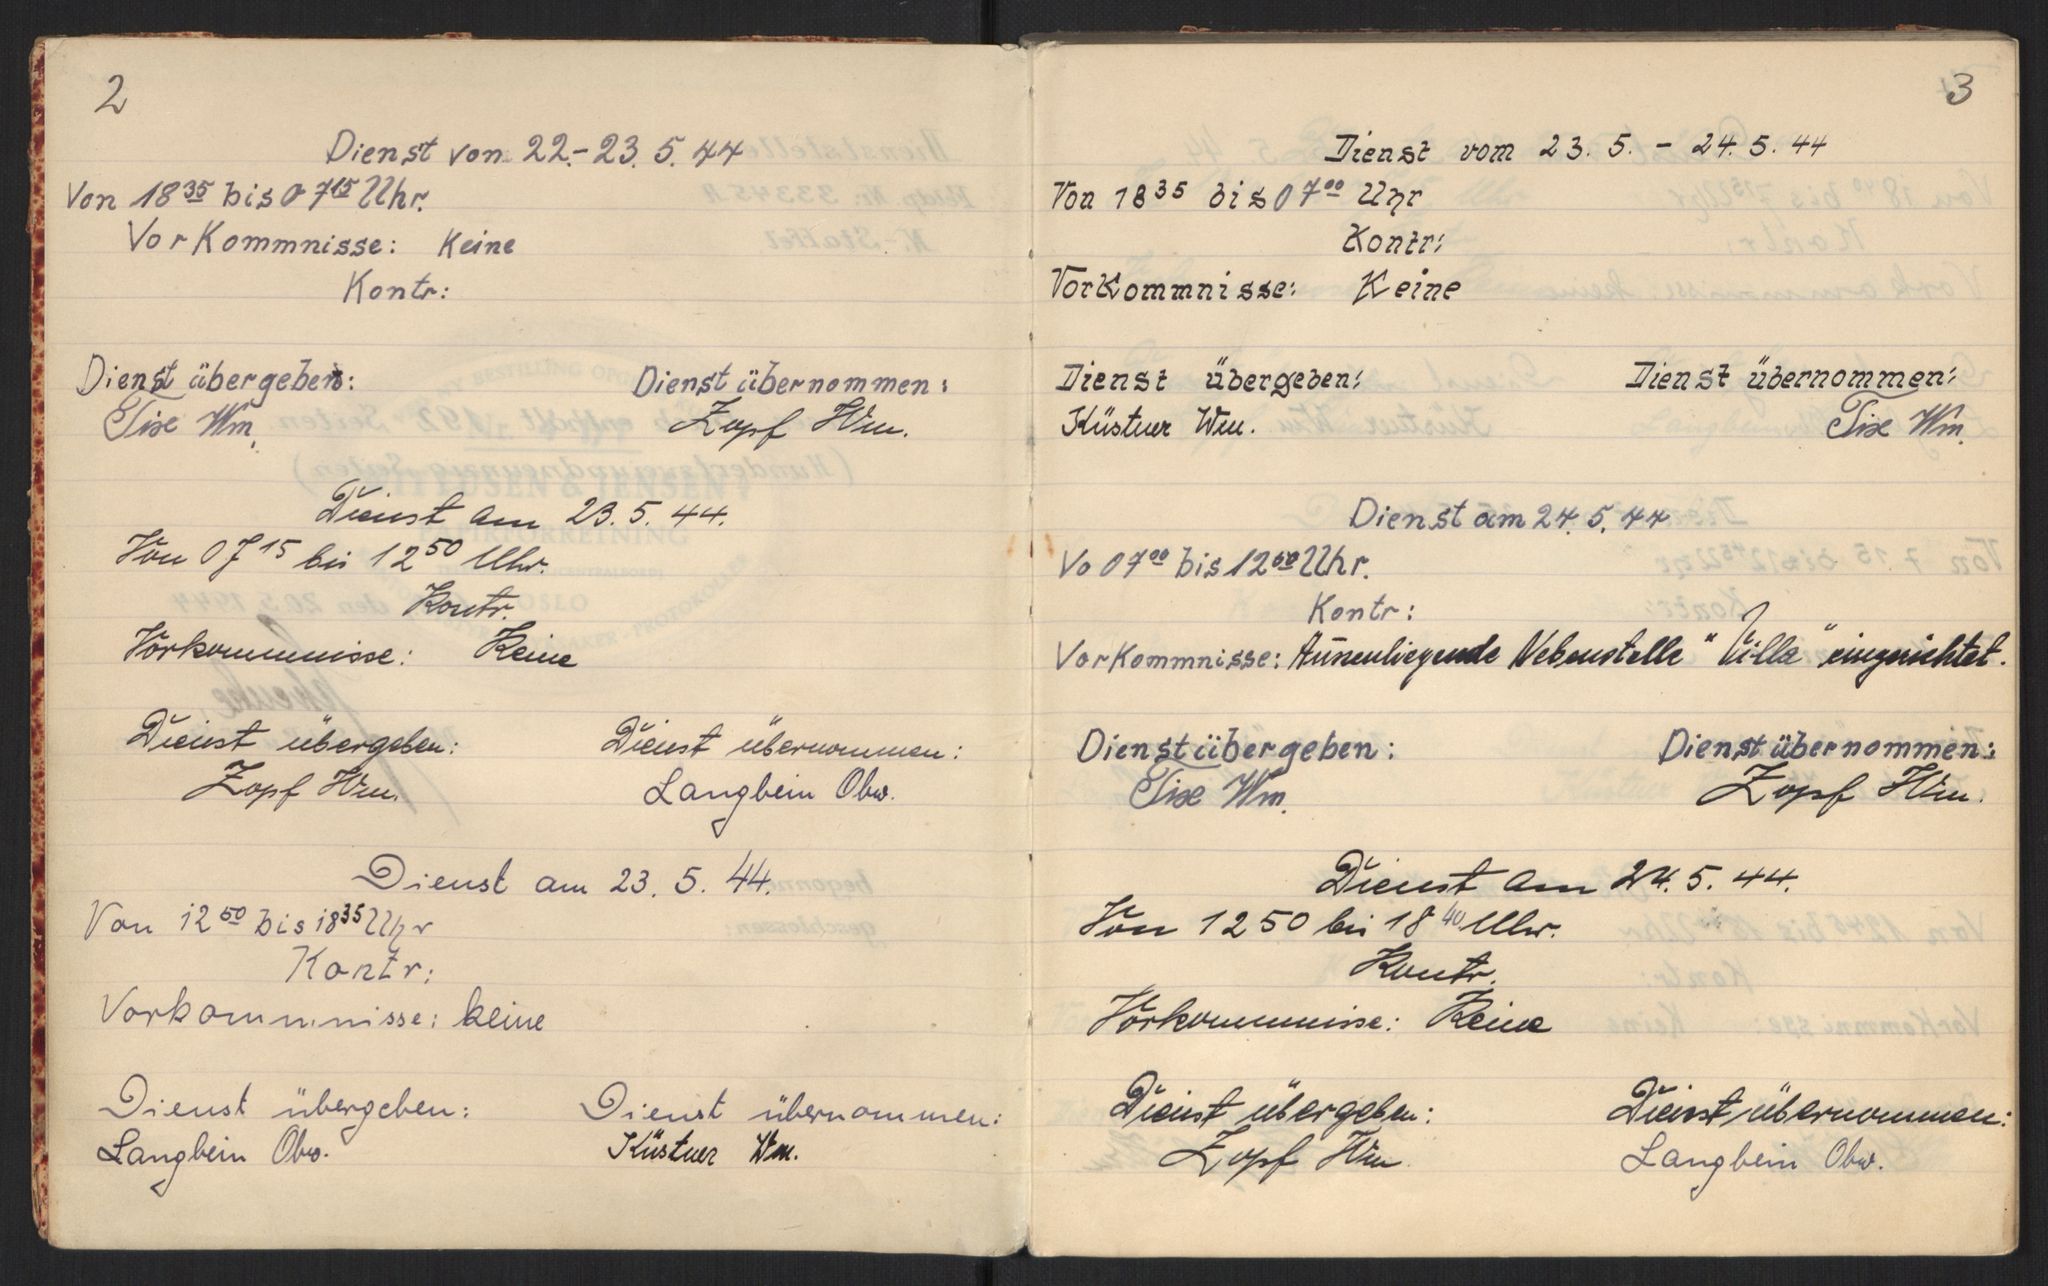 2
Dienst von 22.-23. 5. 44
Von 18 35 bis 07 15 Uhr.
Vorkommnisse: Keine
Kontr:
Dienst übergeben: Dienst übernommen:
Tixe Wm. Zopf Wm.
Dienst am 23. 5. 44.
Von 07 15 bis 12 50 Uhr.
Kontr.
Vorkommnisse: Keine
Dienst übergeben: Dienst übernommen:
Zopf Wm. Langbein Obw.
Dienst am 23. 5. 44.
Von 12 50 bis 18 35 Uhr
Kontr:
Vorkommnisse: keine
Dienst übergeben: Dienst übernommen:
Langbein Obw. Küstner Wm.
3
Dienst vom 23. 5. - 24. 5. 44
Von 18 35 bis 07 00 Uhr
Kontr:
Vorkommnisse: Keine
Dienst übergeben: Dienst übernommen:
Küstner Wm. Tixe Wm.
Dienst am 24. 5. 44
Vo 07 00 bis 12 50 Uhr.
Kontr:
Vorkommnisse: Aussenliegende Nebenstelle "Villa" eingerichtet.
Dienst übergeben: Dienst übernommen:
Tixe Wm. Zopf Wm.
Dienst am 24. 5. 44.
Von 12 50 bis 18 40 Uhr.
Kontr.
Vorkommnisse: Keine
Dienst übergeben: Dienst übernommen:
Zopf Wm Langbein Obw.